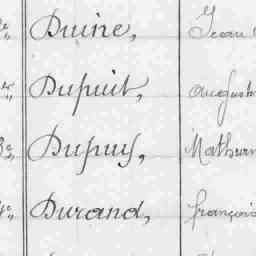 Duine, Jean
Dupuit, August
Dupuy, Mathurin
Durand, françois